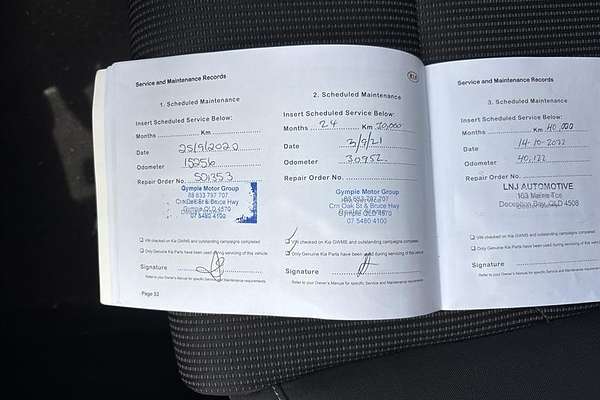 Service and Maintenance Records
1. Scheduled Maintenance
Insert Scheduled Service Below:
Months Km
Date 25/9/2020
Odometer 15256
Repair Order No. 501353
Gympie Motor Group
88 833 797 707
Crn Oak St & Bruce Hwy
Gympie QLD 4570
07 5480 4100
VIN checked on Kia GWMS and outstanding campaigns completed
Only Genuine Kia Parts have been used during servicing of this vehicle
Signature
Refer to your Owner's Manual for specific Service and Maintenance requirements
Page 53
KIA
2. Scheduled Maintenance
Insert Scheduled Service Below:
Months 24 Km 30,000
Date 3/9/21
Odometer 30952
Repair Order No.
Gympie Motor Group
88 833 797 707
Crn Oak St & Bruce Hwy
Gympie QLD 4570
07 5480 4100
VIN checked on Kia GWMS and outstanding campaigns completed
Only Genuine Kia Parts have been used during servicing of this vehicle
Signature
Refer to your Owner's Manual for specific Service and Maintenance requirements
Service and Maintenance Records
3. Scheduled Maintenance
Insert Scheduled Service Below:
Months Km 40,000
Date 14-10-2022
Odometer 40,122
Repair Order No.
LNJ AUTOMOTIVE
Deception Bay, QLD 4508
VIN checked on Kia GWMS and outstanding campaigns completed
Only Genuine Kia Parts have been used during servicing of this vehicle
Signature
Refer to your Owner's Manual for specific Service and Maintenance